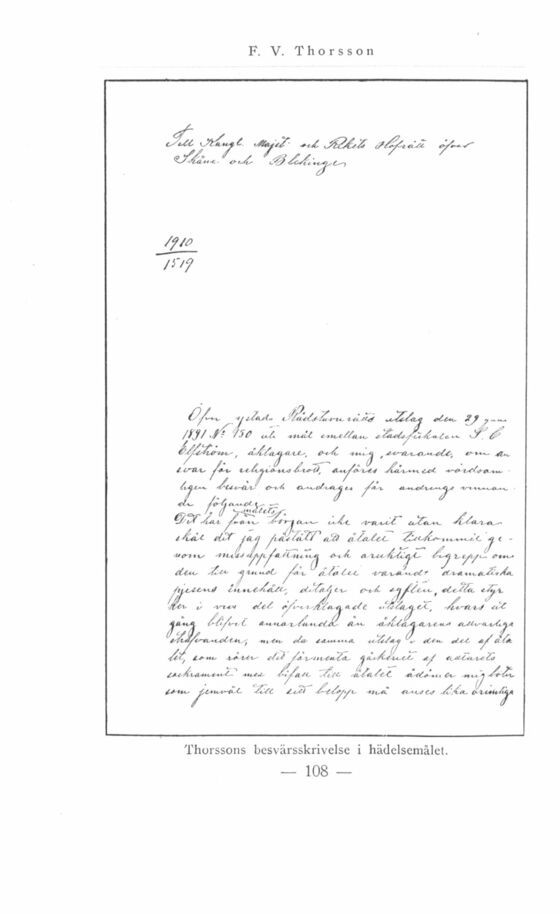 F. V. Thorsson
Till Kongl. Majet och Rikets Hofrätt öfver
Skåne och Blekinge,
1910
1519
Öfver Ystads Rådstuvurätts utslag den 29
1891 № 150 uti mål emellan stadsfiskalen S. C
Elfström, åklagare, och mig, svarande, om an-
svar för religionsbrott, anföres härmed vördsam-
ligen besvär och andrages för ändrings vinnan-
de följande:
Det har från målets början icke varit utan klara
skäl det jag påstått att åtalet tillkommit ge-
nom missuppfattning och oriktigt begrepp om
den till grund för åtalet varande dramatiska
pjesens innehåll, detaljer och syften, detta styr-
kes i viss del öfverklagade utslaget, hvars ut-
gång blifvit annorlunda än åklagarens
men da samma utslag i den del af åta-
let, som rörer det förmenta gäckeriet af
sackrament med bifall till åtalet ådömer mig böter
som jemväl till sitt belopp må anses lika orimliga
Thorssons besvärsskrivelse i hädelsemålet.
— 108 —